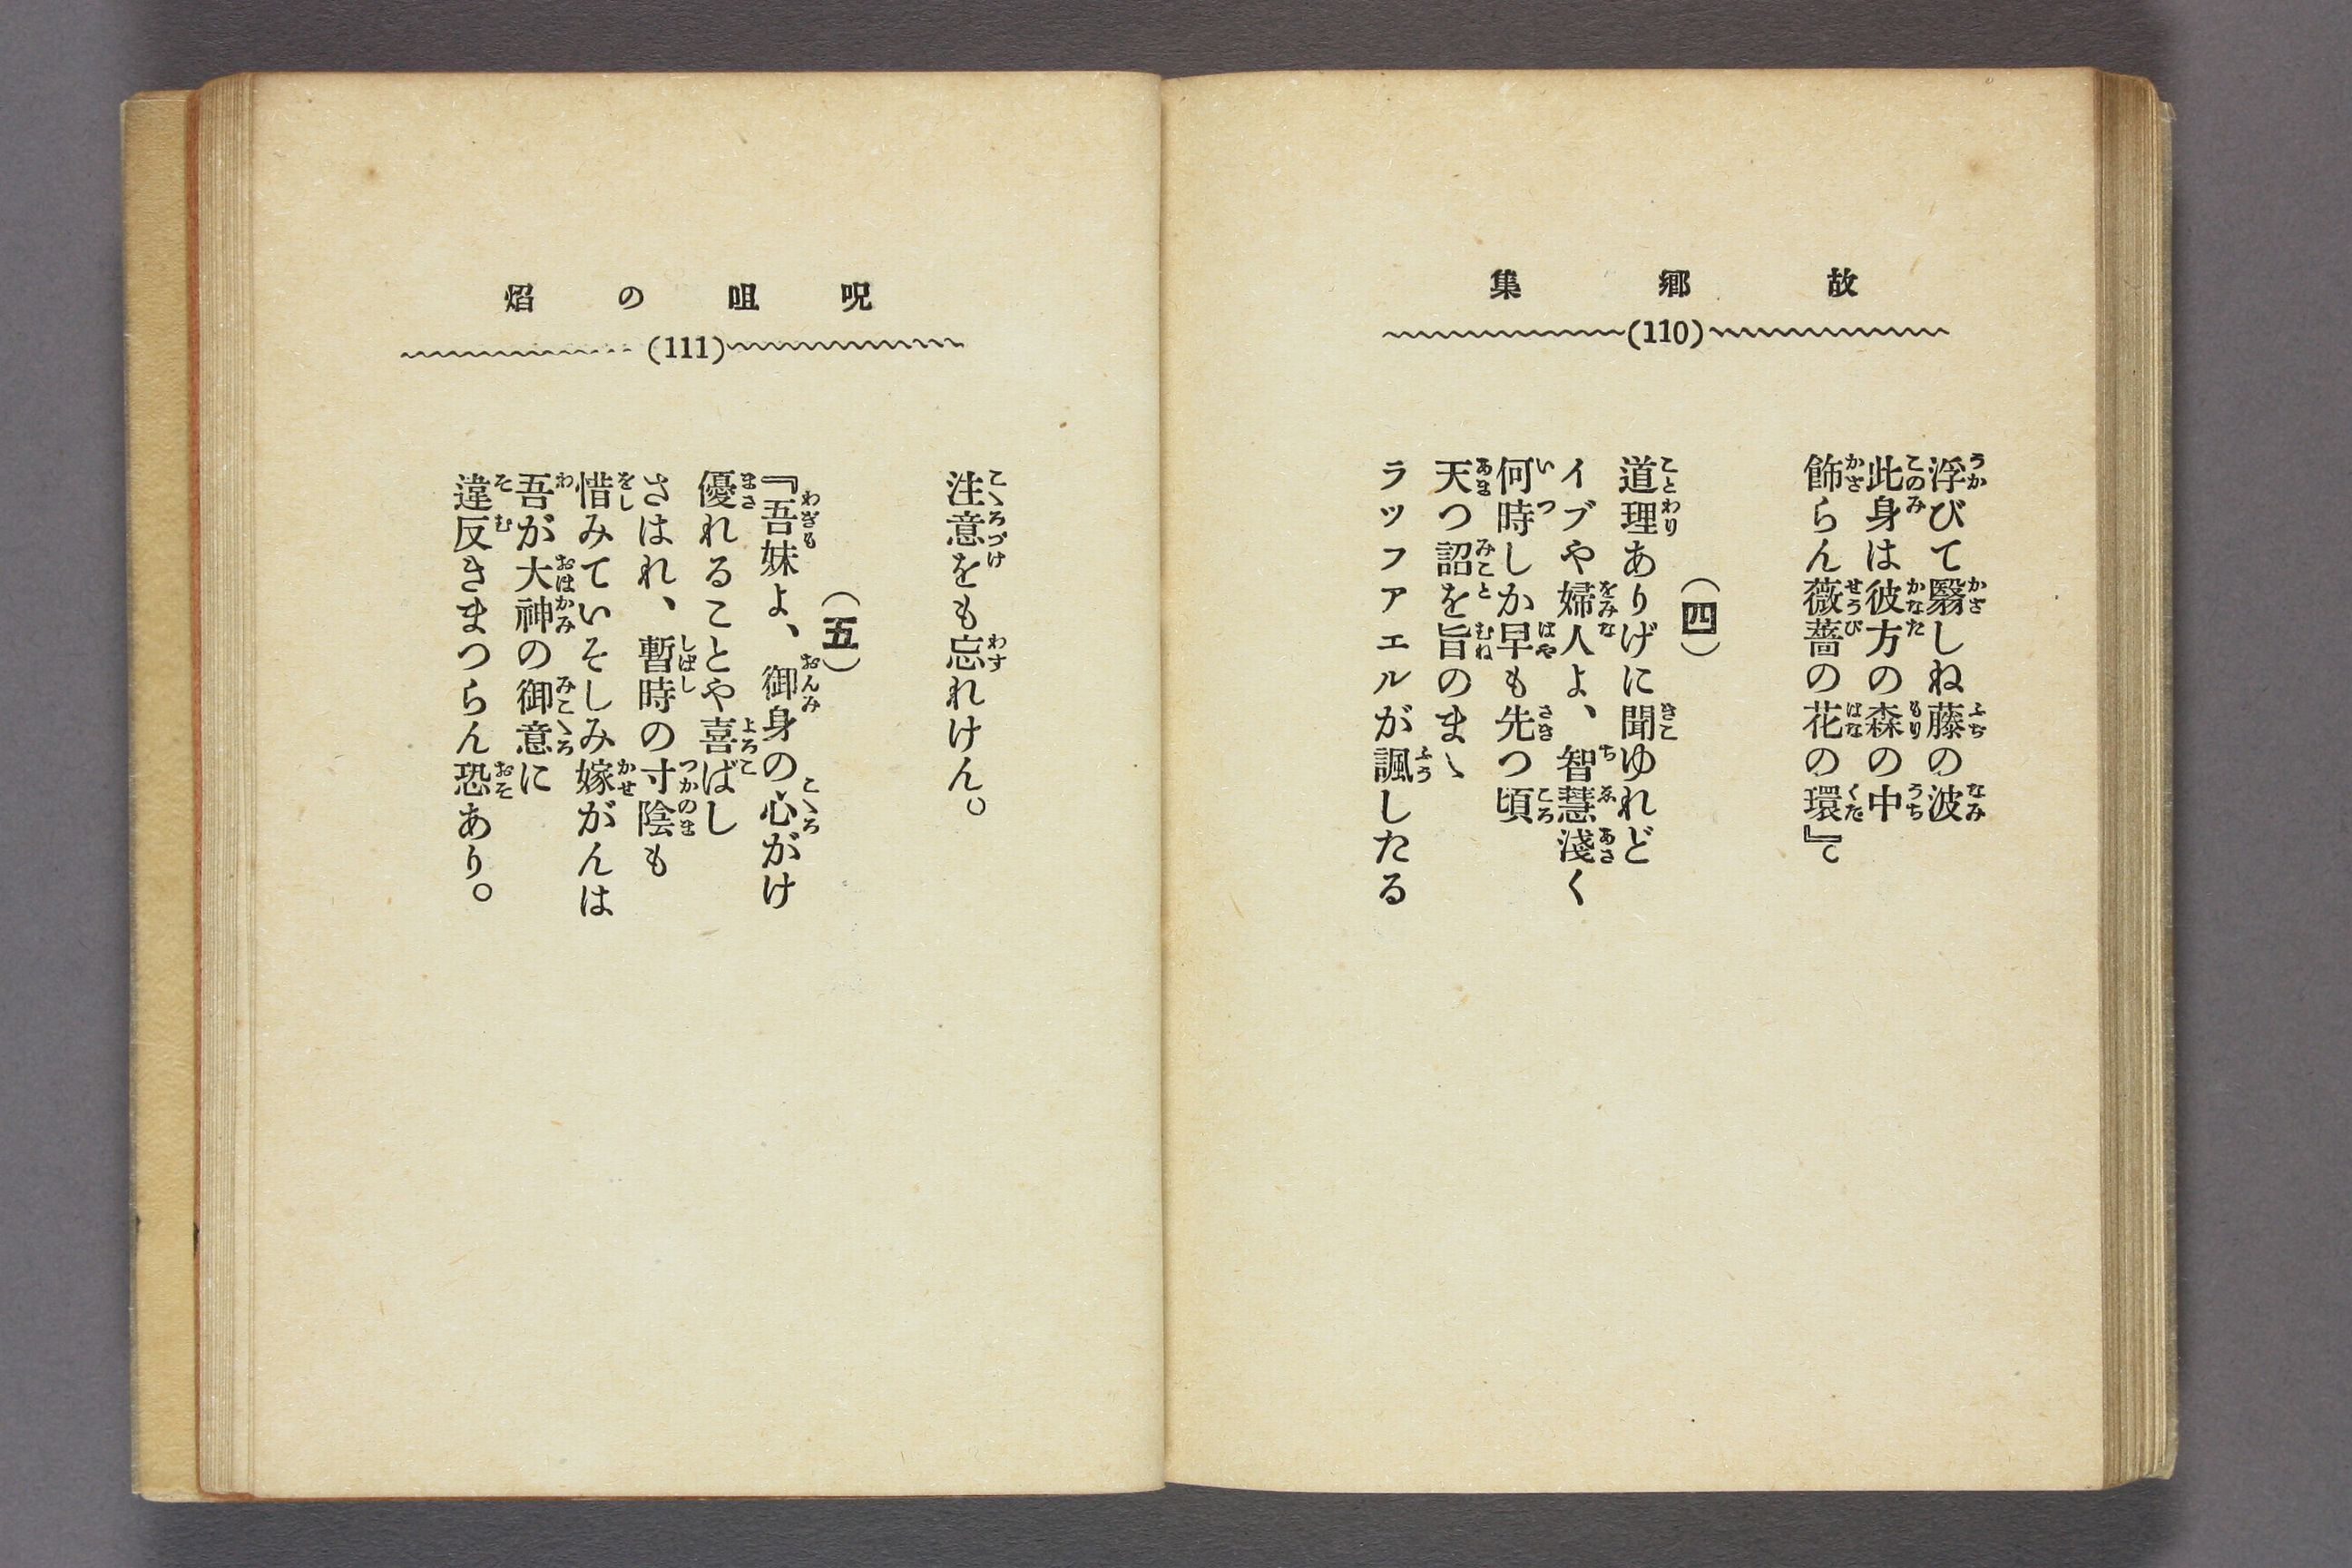 故鄕集
(110)
浮びて翳しね藤の波
此身は彼方の森の中
飾らん薔薇の花の環』。
(四)
道理ありげに聞ゆれど
イブや婦人よ、智慧淺く
何時しか早も先つ頃
天つ詔を旨のまゝ
ラッファエルが諷したる
呪咀の焰
(111)
注意をも忘れけん。
(五)
『吾妹よ、御身の心がけ
優れることや喜ばし
さはれ、暫時の寸陰も
惜みていそしみ嫁がんは
吾が大神の御意に
違反きまつらん恐あり。